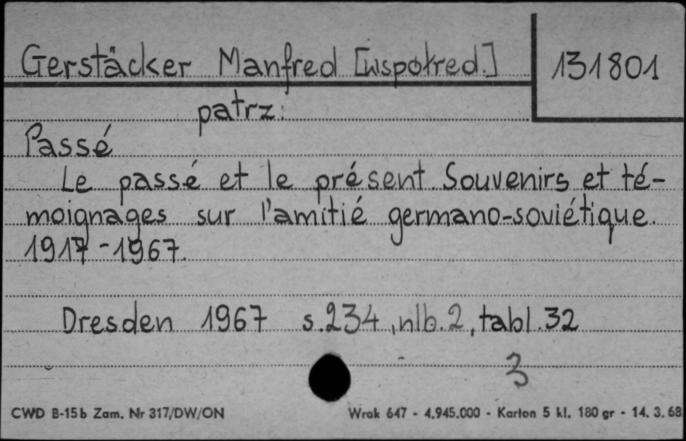 Gerstäcker Manfred [współred.]
131801
patrz:
Passé
Le passé et le présent. Souvenirs et té-
moignages sur l'amitié germano-soviétique.
1917-1967.
Dresden 1967 s.234, nlb.2, tabl.32
3
CWD B-15b Zam. Nr 317/DW/ON
Wrak 647 - 4.945.000 - Karton 5 kl. 180 gr - 14. 3. 68